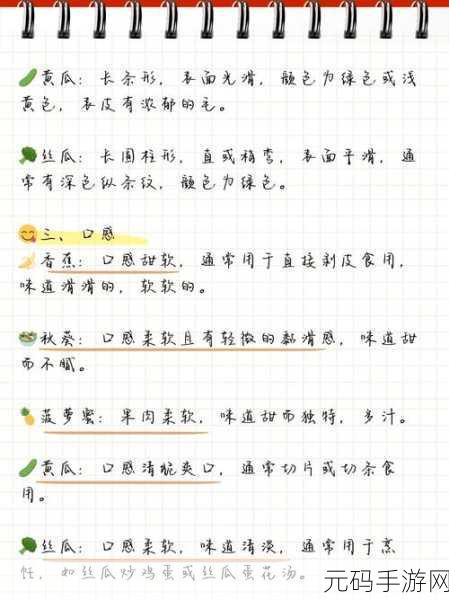 黄瓜：长条形，表面光滑，颜色为绿色或浅
黄色，表皮有浓郁的毛。
丝瓜：长圆柱形，直或稍弯，表面平滑，通
常有深色纵条纹，颜色为绿色。
三、口感
香蕉：口感甜软，通常用于直接剥皮食用，
味道滑滑的，软软的。
秋葵：口感柔软且有轻微的黏滑感，味道甜
而不腻。
菠萝蜜：果肉柔软，味道甜而独特，多汁。
黄瓜：口感清脆爽口，通常切片或切条食
用。
丝瓜：口感柔软，味道清淡，通常用于烹
饪，如丝瓜炒鸡蛋或丝瓜蛋花汤。
元码手游网